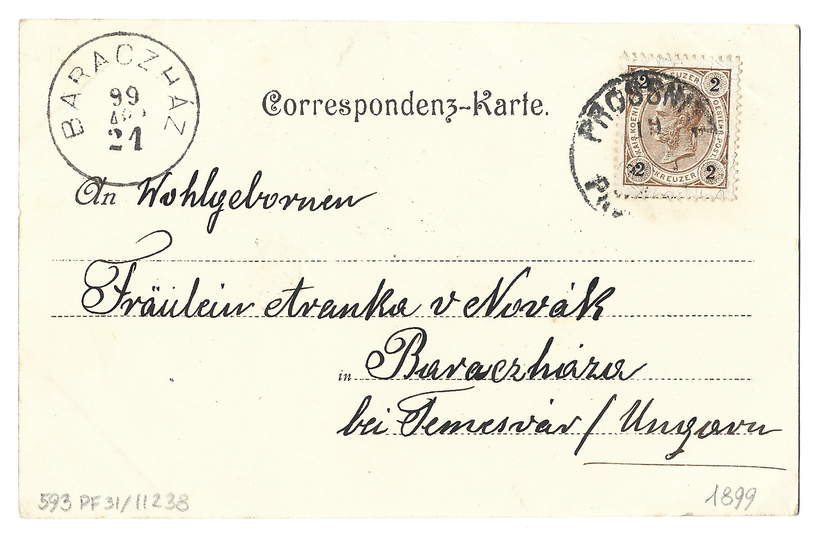 BARACZHÁZ
99
21
Correspondenz-Karte.
PROSSNITZ
19
2 KREUZER 2
KAIS. KOENIGL. OESTERR. POST
2 KREUZER 2
An Wohlgebornen
Fräulein Aranka v Novák
in Baraczháza
bei Temesvár / Ungarn
593 PF31/11238
1899